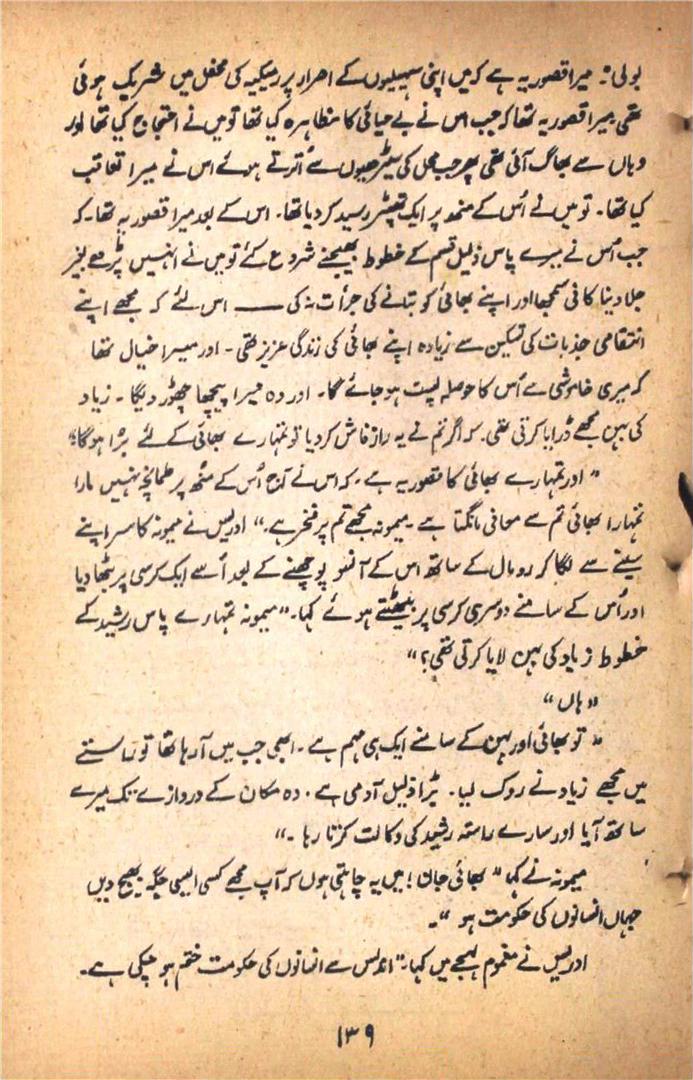 بولی: میرا قصور یہ ہے کہ میں اپنی سہیلیوں کے اصرار پر رمیکیہ کی محفل میں شریک ہوئی
تھی میرا قصور یہ تھا کہ جب اس نے بے حیائی کا مظاہرہ کیا تھا تو میں نے احتجاج کیا تھا اور
وہاں سے بھاگ آئی تھی پھر جب محل کی سیڑھیوں سے اُترتے ہوئے اس نے میرا تعاقب
کیا تھا۔ تو میں نے اُس کے منھ پر ایک تھپڑ رسید کر دیا تھا۔ اس کے بعد میرا قصور یہ تھا۔ کہ
جب اُس نے میرے پاس ذلیل قسم کے خطوط بھیجنے شروع کئے تو میں نے انہیں پڑھے بغیر
جلا دینا کافی سمجھا اور اپنے بھائی کو بتانے کی جرأت نہ کی —— اس لئے کہ مجھے اپنے
انتقامی جذبات کی تسکین سے زیادہ اپنے بھائی کی زندگی عزیز تھی۔ اور میرا خیال تھا
کہ میری خاموشی سے اُس کا حوصلہ پست ہو جائے گا۔ اور وہ میرا پیچھا چھوڑ دیگا۔ زیاد
کی بہن مجھے ڈرایا کرتی تھی۔ کہ اگر تم نے یہ راز فاش کر دیا تو تمہارے بھائی کے لئے بُرا ہوگا۔"
"اور تمہارے بھائی کا قصور یہ ہے۔ کہ اس نے آج اُس کے منھ پر طمانچہ نہیں مارا
تمہارا بھائی تم سے معافی مانگتا ہے۔ میمونہ مجھے تم پر فخر ہے۔" ادریس نے میمونہ کا سر اپنے
سینے سے لگا کر رومال کے ساتھ اس کے آنسو پوچھنے کے بعد اُسے ایک کرسی پر بٹھا دیا
اور اُس کے سامنے دوسری کرسی پر بیٹھتے ہوئے کہا۔ "میمونہ تمہارے پاس رشید کے
خطوط زیاد کی بہن لایا کرتی تھی؟"
"ہاں"
"تو بھائی اور بہن کے سامنے ایک ہی مہم ہے۔ ابھی جب میں آ رہا تھا تو راستے
میں مجھے زیاد نے روک لیا۔ بڑا ذلیل آدمی ہے۔ وہ مکان کے دروازے تک میرے
ساتھ آیا اور سارے راستہ رشید کی وکالت کرتا رہا۔"
میمونہ نے کہا "بھائی جان! میں یہ چاہتی ہوں کہ آپ مجھے کسی ایسی جگہ بھیج دیں
جہاں انسانوں کی حکومت ہو"۔
ادریس نے مغموم لہجے میں کہا۔ "اندلس سے انسانوں کی حکومت ختم ہو چکی ہے۔
۱۳۹